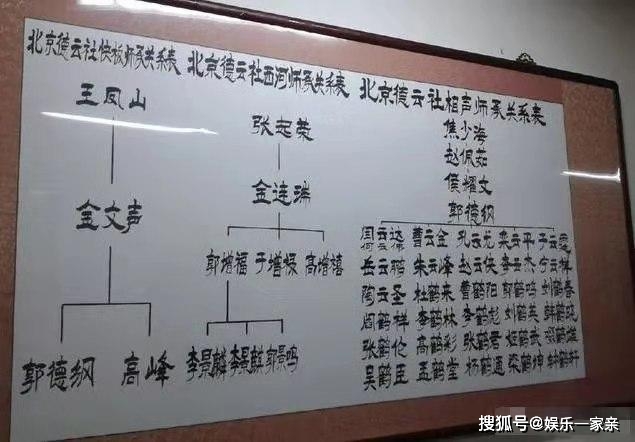 北京德云社快板师承关系表
王凤山
金文声
郭德纲 高峰
北京德云社西河师承关系表
张志荣
金连瑞
郭增福 于增禄 高增禧
李景麟 李景麒 郭景鸣
北京德云社相声师承关系表
焦少海
赵佩茹
侯耀文
郭德纲
曹云金 孔云龙 栾云平 于云霆
岳云鹏 朱云峰 赵云侠 李云杰 宁云祥
陶云圣 杜鹤来 曹鹤阳 郭鹤鸣 刘鹤春
阎鹤祥 李鹤林 李鹤彪 刘鹤英
张鹤伦 高鹤彩 张鹤君
吴鹤臣 孟鹤堂 杨鹤通 梁鹤坤
搜狐号@娱乐一家亲